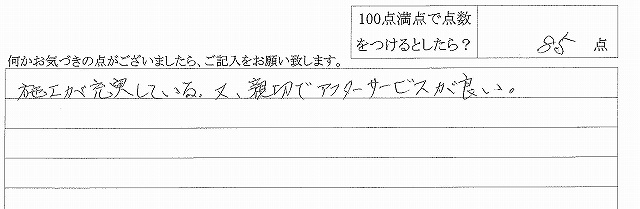 100点満点で点数
をつけるとしたら？
85 点
何かお気づきの点がございましたら、ご記入をお願い致します。
施工が充実している。又、親切でアフターサービスが良い。